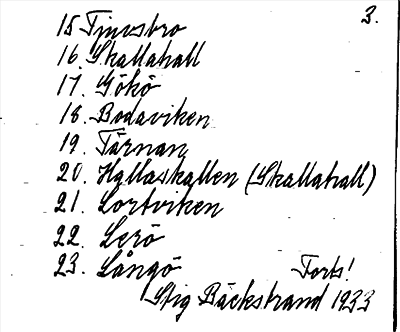 3.
15 Finnsbro
16. Skallahall
17. Gökö
18. Bodaviken
19. Tärnan
20. Hallaskallen (Skallahall)
21. Lortviken
22. Lerö
23. Långö Forts!
Stig Bäckstrand 1933